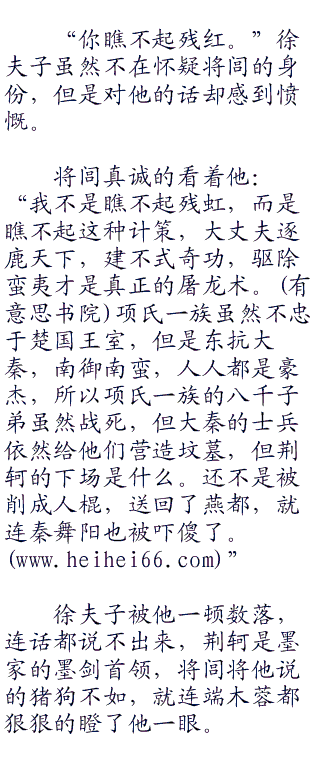 “你瞧不起残红。”徐
夫子虽然不在怀疑将闾的身
份，但是对他的话却感到愤
慨。
将闾真诚的看着他：
“我不是瞧不起残虹，而是
瞧不起这种计策，大丈夫逐
鹿天下，建不式奇功，驱除
蛮夷才是真正的屠龙术。(有
意思书院)项氏一族虽然不忠
于楚国王室，但是东抗大
秦，南御南蛮，人人都是豪
杰，所以项氏一族的八千子
弟虽然战死，但大秦的士兵
依然给他们营造坟墓，但荆
轲的下场是什么。还不是被
削成人棍，送回了燕都，就
连秦舞阳也被吓傻了。
(www.heihei66.com)”
徐夫子被他一顿数落，
连话都说不出来，荆轲是墨
家的墨剑首领，将闾将他说
的猪狗不如，就连端木蓉都
狠狠的瞪了他一眼。